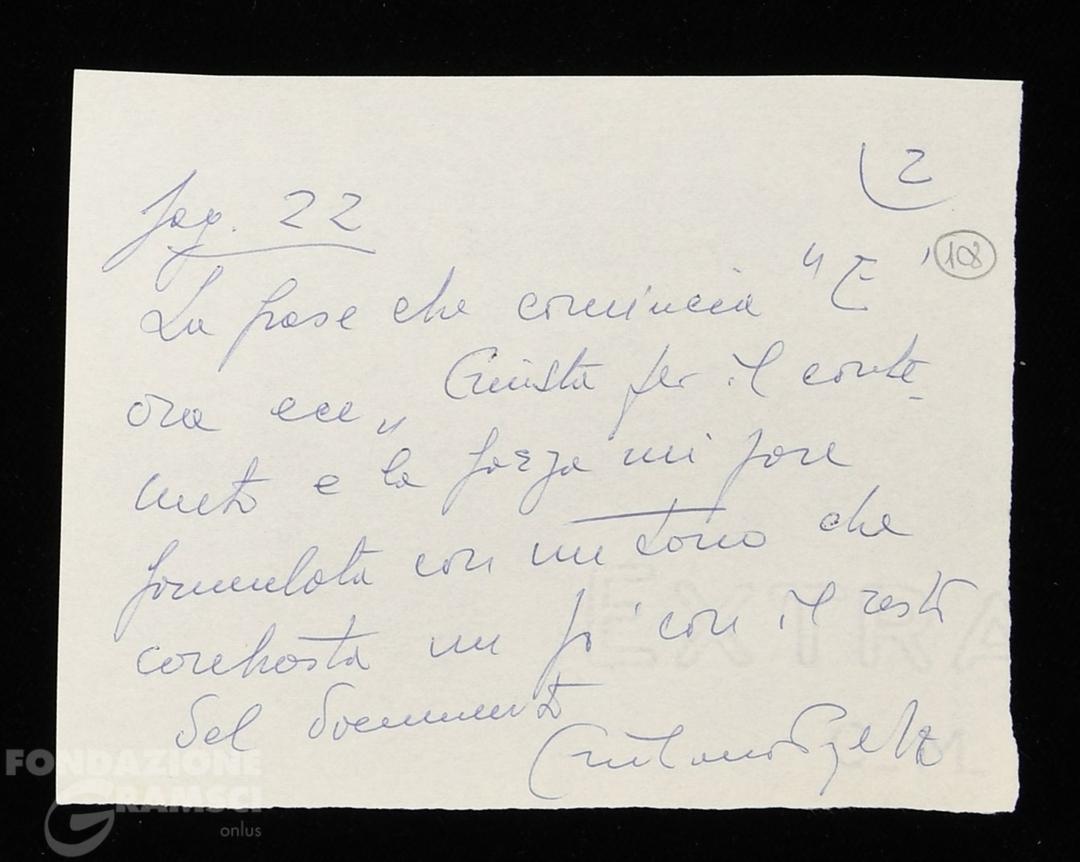 2
pag. 22
108
La frase che comincia "E'
ora ecc" Giusta per il conte-
nuto e la forza mi pare
formulata con un tono che
contrasta un po' con il resto
del documento
Giuliano
EXTRA
FONDAZIONE
GRAMSCI
onlus